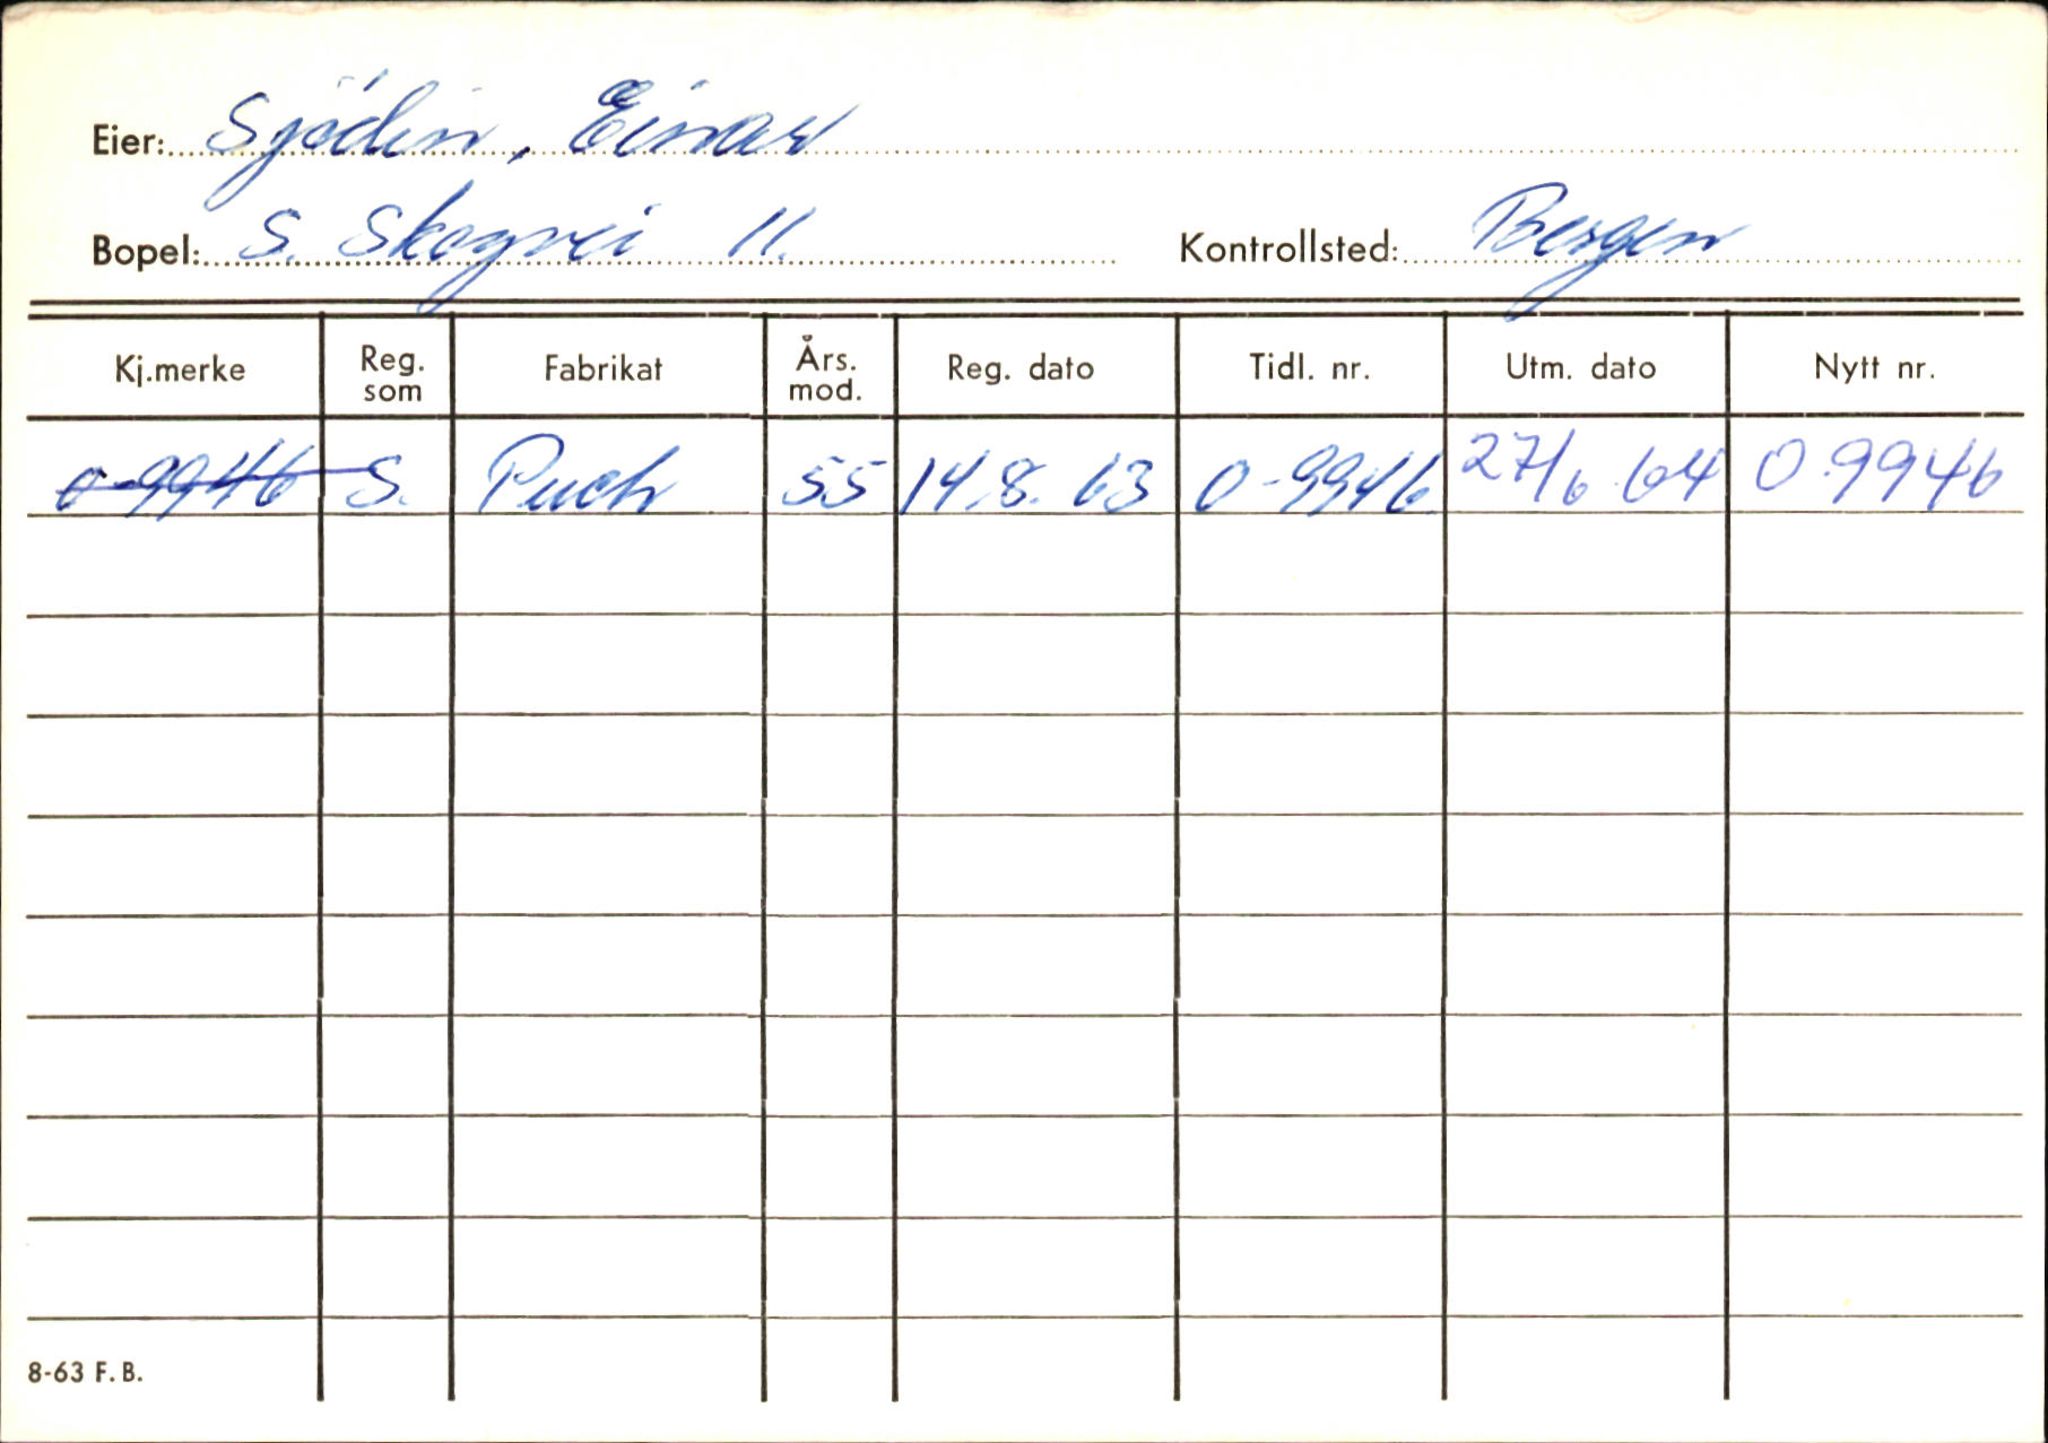 Eier: Sjödin, Einar
Bopel: S. Skogvei 11. Kontrollsted: Bergen
Kj.merke Reg. som Fabrikat Års. mod. Reg. dato Tidl. nr. Utm. dato Nytt nr.
O-9946 S. Puch 55 14.8.63 O-9946 27/6.64 O.9946
8-63 F. B.